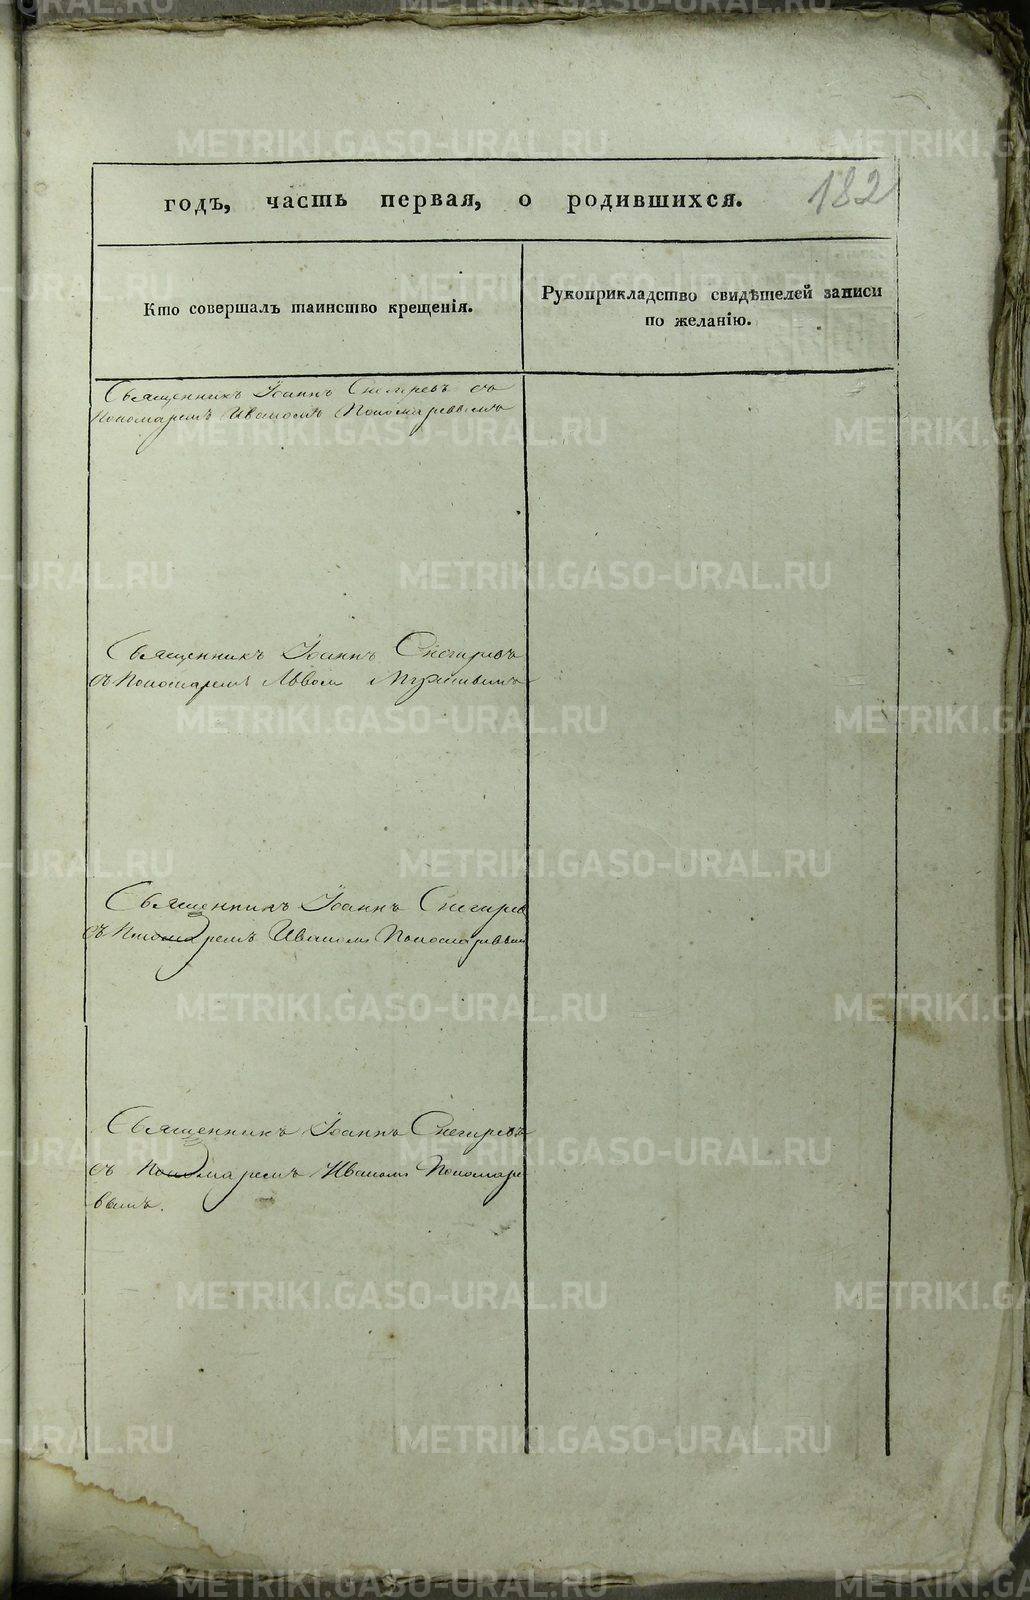 годъ, часть первая, о родившихся.
182
Кто совершалъ таинство крещенія.
Рукоприкладство свидѣтелей записи
по желанію.
Священникъ Іоаннъ Снегиревъ съ
Пономаремъ Иваномъ Пономаревымъ
Священникъ Іоаннъ Снегиревъ
съ Пономаремъ Львом
Священникъ Іоаннъ Снегирев
съ Пономаремъ Иваномъ Пономаревым
Священникъ Іоаннъ Снегиревъ
съ Пономаремъ Иваномъ Пономаре
вымъ.
METRIKI.GASO-URAL.RU